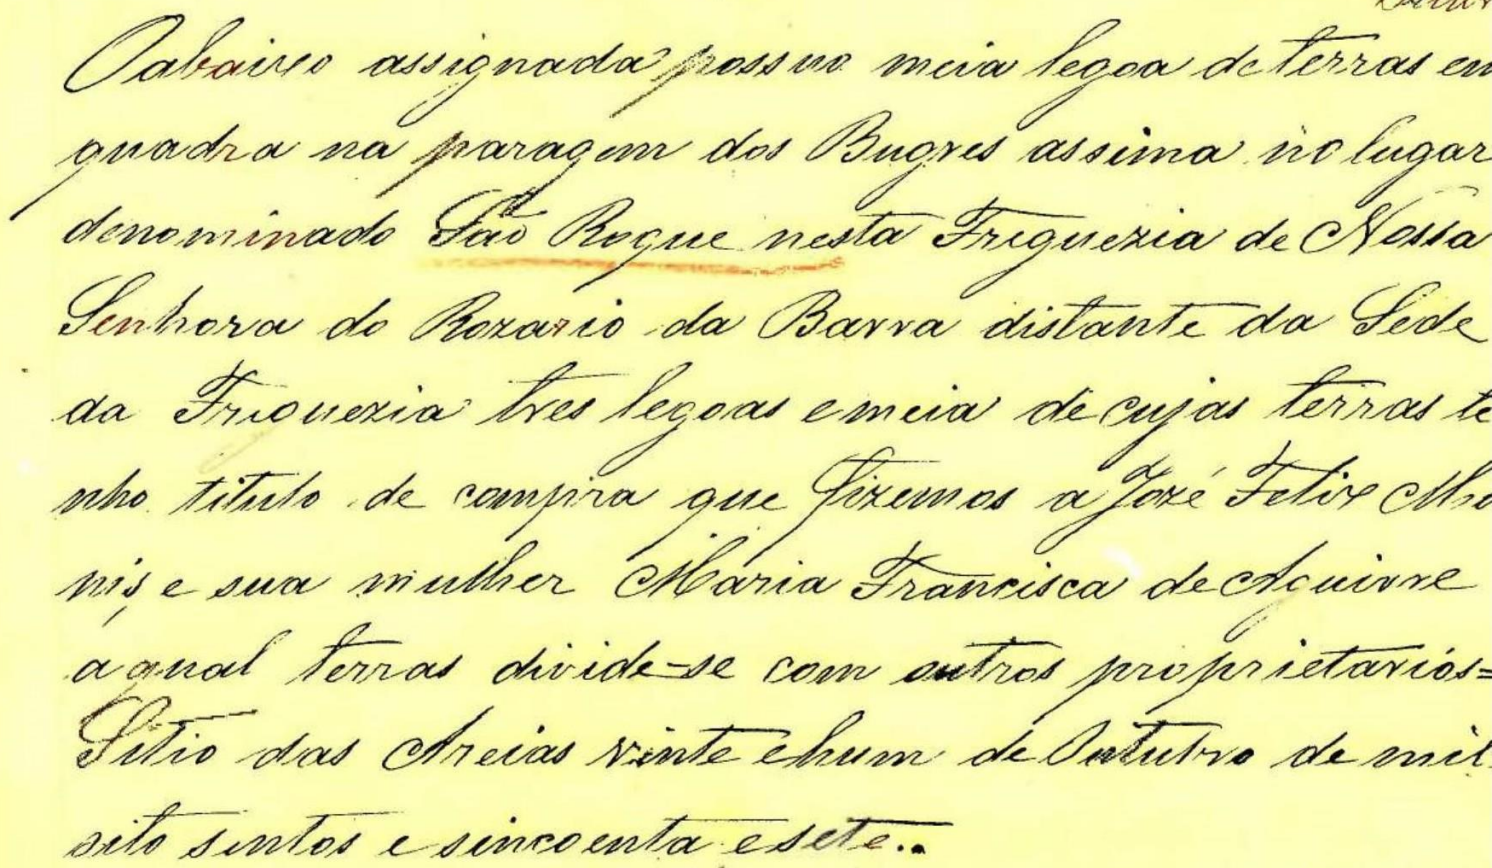 Oabaixo assignada possuo meia legoa de terras em
quadra na paragem dos Bugres assima no lugar
denominado São Roque nesta Freguezia de Nossa
Senhora do Rozario da Barra distante da Sede
da Freguezia tres legoas e meia de cujas terras te
nho titulo de compra que fizemos a Jozé Felix Mo
nis, e sua mulher Maria Francisca de Aguirre
a qual terras divide-se com outros proprietarios=
Sitio das Areias vinte e hum de Outubro de mil
oito sentos e sincoenta e sete..